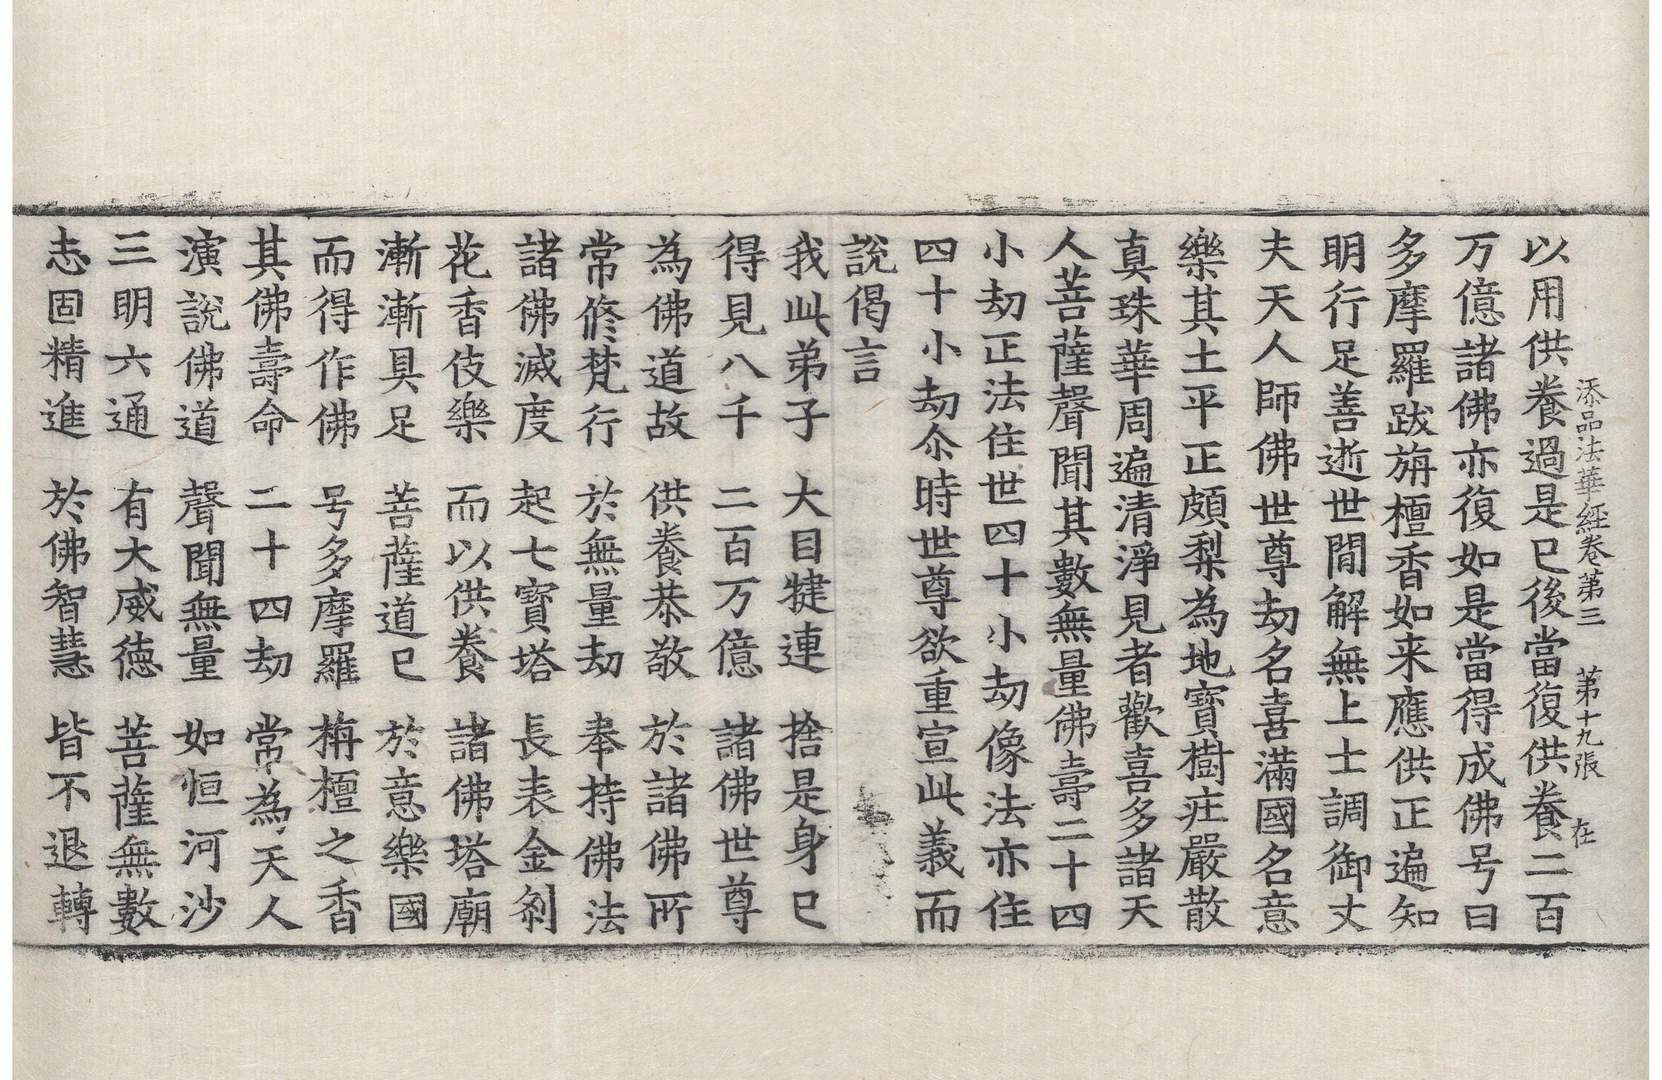 添品法華經卷第三　第十九張　在
以用供養過是已後當復供養二百
万億諸佛亦復如是當得成佛号曰
多摩羅跋栴檀香如来應供正遍知
明行足善逝世間解無上士調御丈
夫天人師佛世尊劫名喜滿國名意
樂其土平正頗梨為地寶樹庄嚴散
真珠華周遍清淨見者歡喜多諸天
人菩薩聲聞其數無量佛壽二十四
小劫正法住世四十小劫像法亦住
四十小劫尒時世尊欲重宣此義而
說偈言
我此弟子　大目犍連　捨是身已
得見八千　二百万億　諸佛世尊
為佛道故　供養恭敬　於諸佛所
常修梵行　於無量劫　奉持佛法
諸佛滅度　起七寶塔　長表金刹
花香伎樂　而以供養　諸佛塔廟
漸漸具足　菩薩道已　於意樂國
而得作佛　号多摩羅　栴檀之香
其佛壽命　二十四劫　常為天人
演說佛道　聲聞無量　如恒河沙
三明六通　有大威德　菩薩無數
志固精進　於佛智慧　皆不退轉